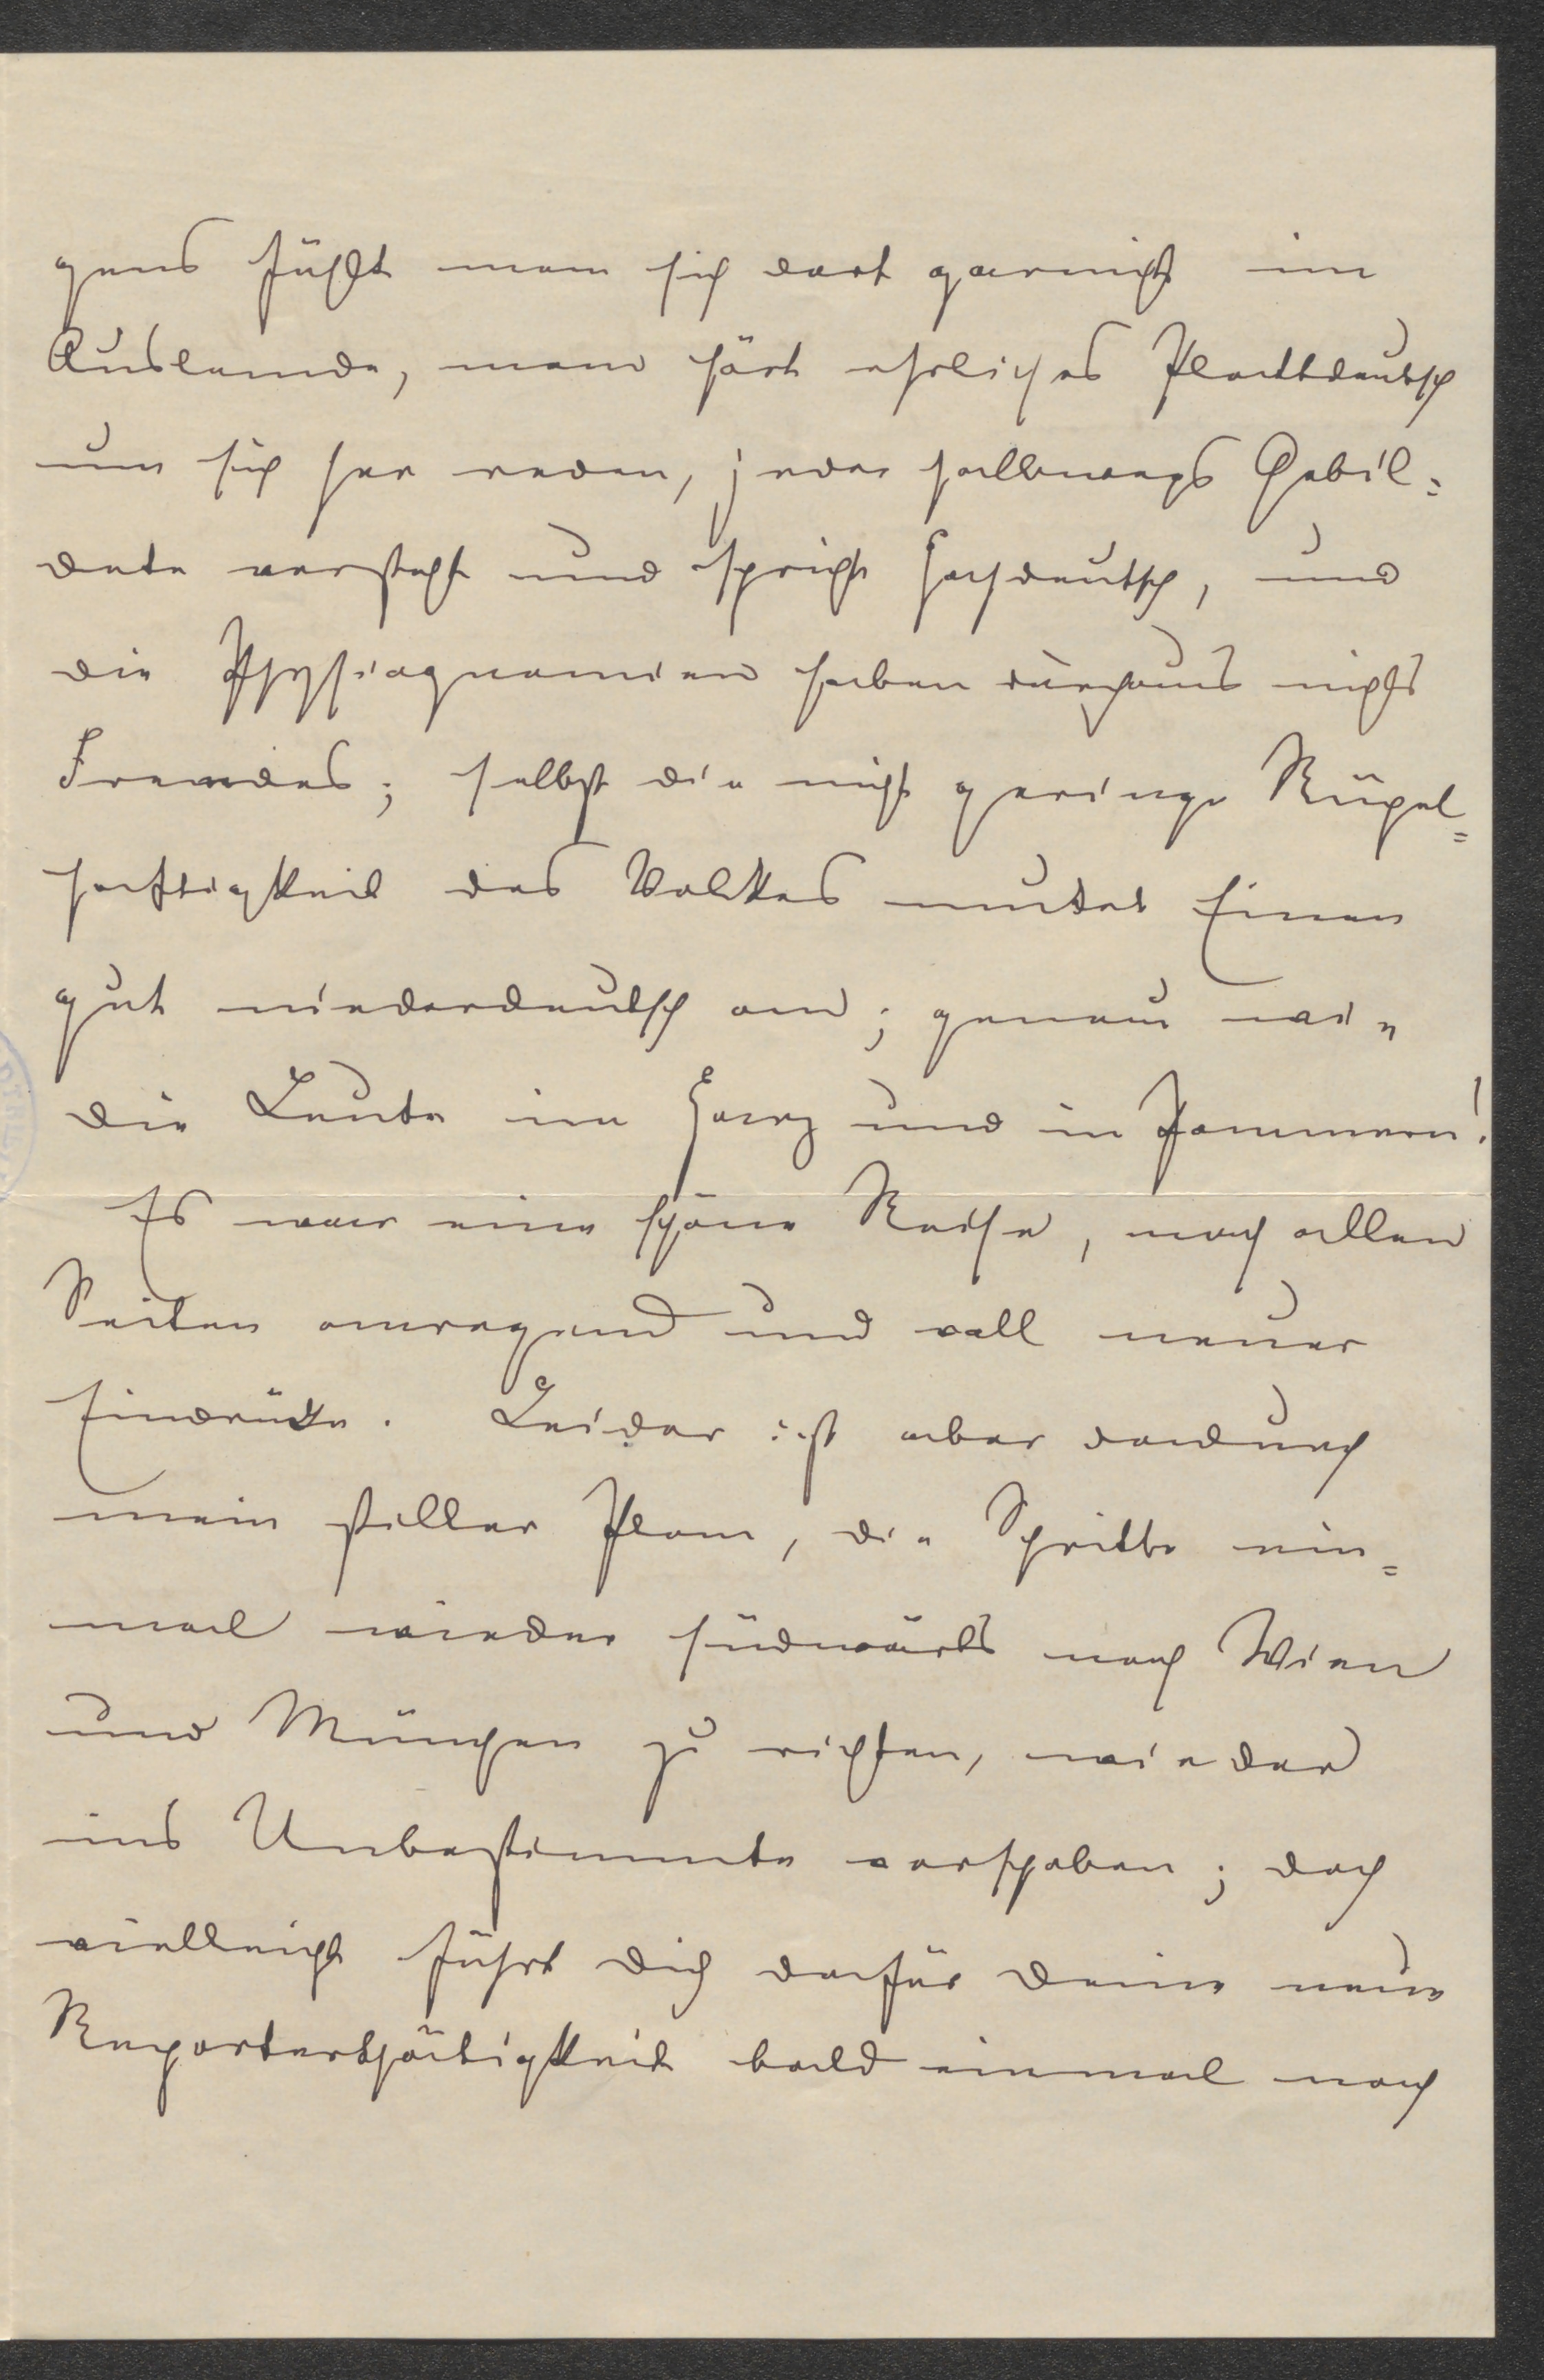 gens fühlt man sich dort garnicht im
Auslande, man hört ehrliches Plattdeutsch
um sich her reden, jeder halbwegs Gebil=
dete versteht und spricht hochdeutsch, und
die Physiognomien haben durchaus nichts
Fremdes; selbst die nicht geringe Rüpel=
haftigkeit des Volkes mutet Einen
gut niederdeutsch an; genau wie
die Leute im Harz und in Pommern!
Es war eine schöne Reise, nach allen
Seiten anregend und voll neuer
Eindrücke. Leider ist aber dadurch
mein stiller Plan, die Schritte ein=
mal wieder südwärts nach Wien
und München zu richten, wieder
ins Unbestimmte verschoben; doch
vielleicht führt Dich dafür Deine neue
Reporterthätigkeit bald einmal nach